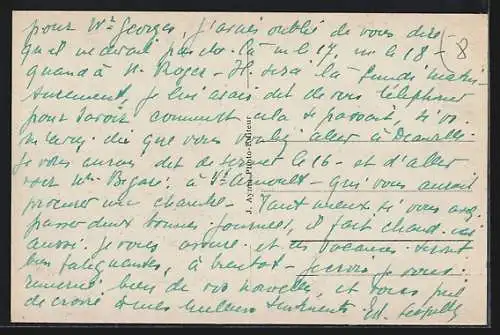 pour Mr Georges, j'avais oublié de vous dire
qu'il ne serait pas ici là ni le 17, ni le 18 -
quand à M. Roger - Il sera là lundi matin
surement, je lui avais dit de vous téléphoner
pour savoir comment cela se passait, si vs
m'aviez dit que vous vouliez aller à Deauville
je vous aurais dit de venir le 16 - et d'aller
voir Mr à St Arnoult - qui vous aurait
procuré une chambre - Tant mieux si vous avez
passer deux bonnes journées, il fait chaud ici
aussi je vous assure et les vacances seront
bien fatiguantes, à bientot - je vous
remercie bien de vos nouvelles, et vous prie
de croire à mes meilleurs sentiments.
8
J. Ayans Photo-Editeur